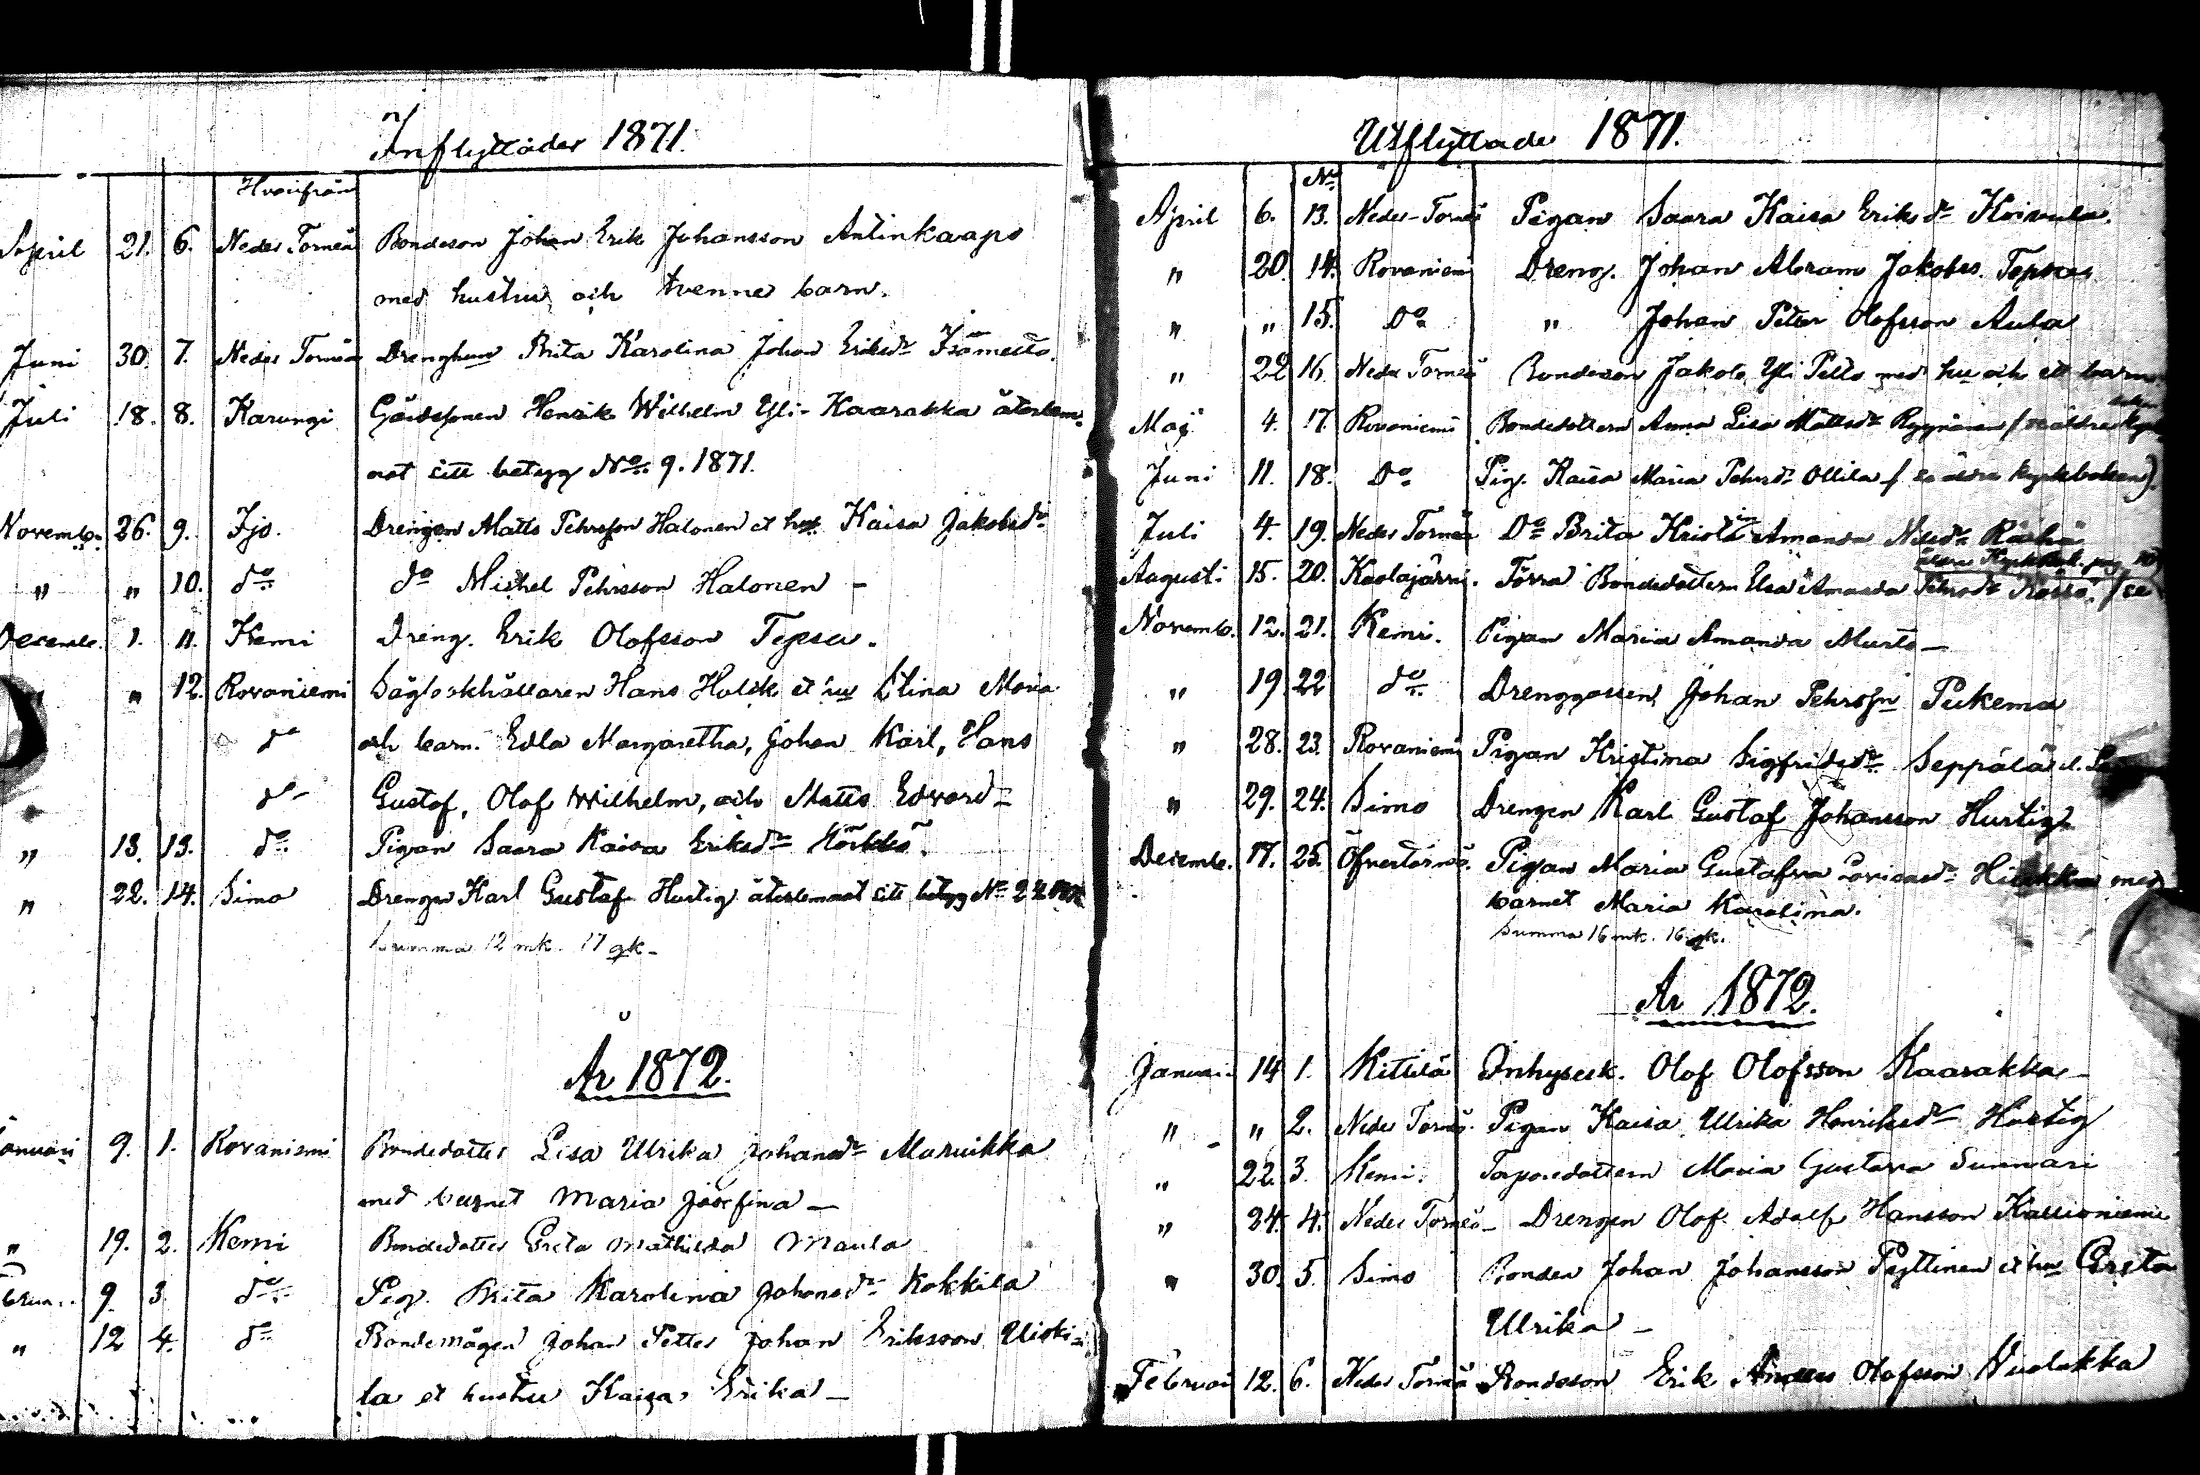 Inflyttader 1871.
Hvarifrån
April 21. 6. Neder Torneå Bondeson Johan Erik Johansson Antinkaapo
med hustru och tvenne barn.
Juni 30. 7. Neder Torneå Drenghu Brita Karolina Johan Eriksdr Isometsä.
Juli 18. 8. Karungi Henrik Wilhelm Yli-Kaarakka återlem-
nat sitt betyg No. 9. 1871.
Novemb. 26. 9. Ijo. Drengen Matts Pehrsson Halonen et hu Kaisa Jakobsdr
" " 10. do do Michel Pehrsson Halonen -
Decemb. 1. 11. Kemi Dreng. Erik Olofsson Tepsa.
" 12. Rovaniemi Hans et hu Maria
do och barn. Edla Margaretha, Johan Karl, Hans
do Gustaf, Olof Wilhelm, och Matts Edvard-
" 13. 13. do Pigan Saara Kaisa Eriksdr Körkkö.
" 22. 14. Simo Drengen Karl Gustaf Hurtig återlemnat sitt betyg No
Summa 12 mk. 17 pk-
År 1872.
Januari 9. 1. Rovaniemi Bondedotter Lisa Ulrika Johansdr Maruikka
med barnet Maria Josefina -
" 19. 2. Kemi Bondedotter Greta Mathilda Maula
9. 3. do Pig. Brita Karolina Johansdr Kokkila
" 12 4. do Bondemågen Johan Petter Johan Eriksson Uiski-
la et hustru Kaisa Erika -
Utflyttade 1871.
No
April 6. 13. Neder-Torneå Pigan Saara Kaisa Eriksdr Koivula.
" 20. 14. Rovaniemi Dreng. Johan Abram Jakobs. Tepsa
" " 15. Do " Johan Peter Olofsson Aula
" 22 16. Neder Torneå Bondeson Jakob Yli Pello med hu och ett barn
Maj 4. 17. Rovaniemi Bondedottern Anna Lisa Mattsdr
Juni 11. 18. Do Pig. Kaisa Maria Pehrsdr Ollila / se äldre kyrkboken).
Juli 4. 19. Neder Torneå Do Brita Amanda Nilsdr
äldre Kyrkbok. pag.
Augusti 15. 20. Kuolajärvi. Förra Bondedottern Elsa Amanda Pehrsdr / se
Novemb. 12. 21. Kemi. Pigan Maria Amanda Musto -
" 19 22 do Drenggossen Johan Pehrsson Pukema
" 28. 23. Rovaniemi Pigan Kristina Sigfridsdr Seppälä
" 29. 24. Simo Drengen Karl Gustaf Johansson Hurtig
Decemb. 17. 25. Öfvertorneå. Pigan Maria Gustafva med
barnet Maria Karolina.
Summa 16 mk. 16 pk.
År 1872.
Januari 14 1. Kittilä Inhysesk. Olof Olofsson Kaarakka -
" " 2. Neder Torneå. Pigan Kaisa Ulrika Henriksdr Hurtig
" 22. 3. Kemi. Torparedottern Maria Gustava Sunnari
" 24. 4. Neder Torneå - Drengen Olof Adolf Hansson
" 30. 5. Simo Bonden Johan Johansson Pyttinen et hu Greta
Ulrika -
Februari 12. 6. Neder Torneå Bondeson Erik Anders Olofsson Vuolukka